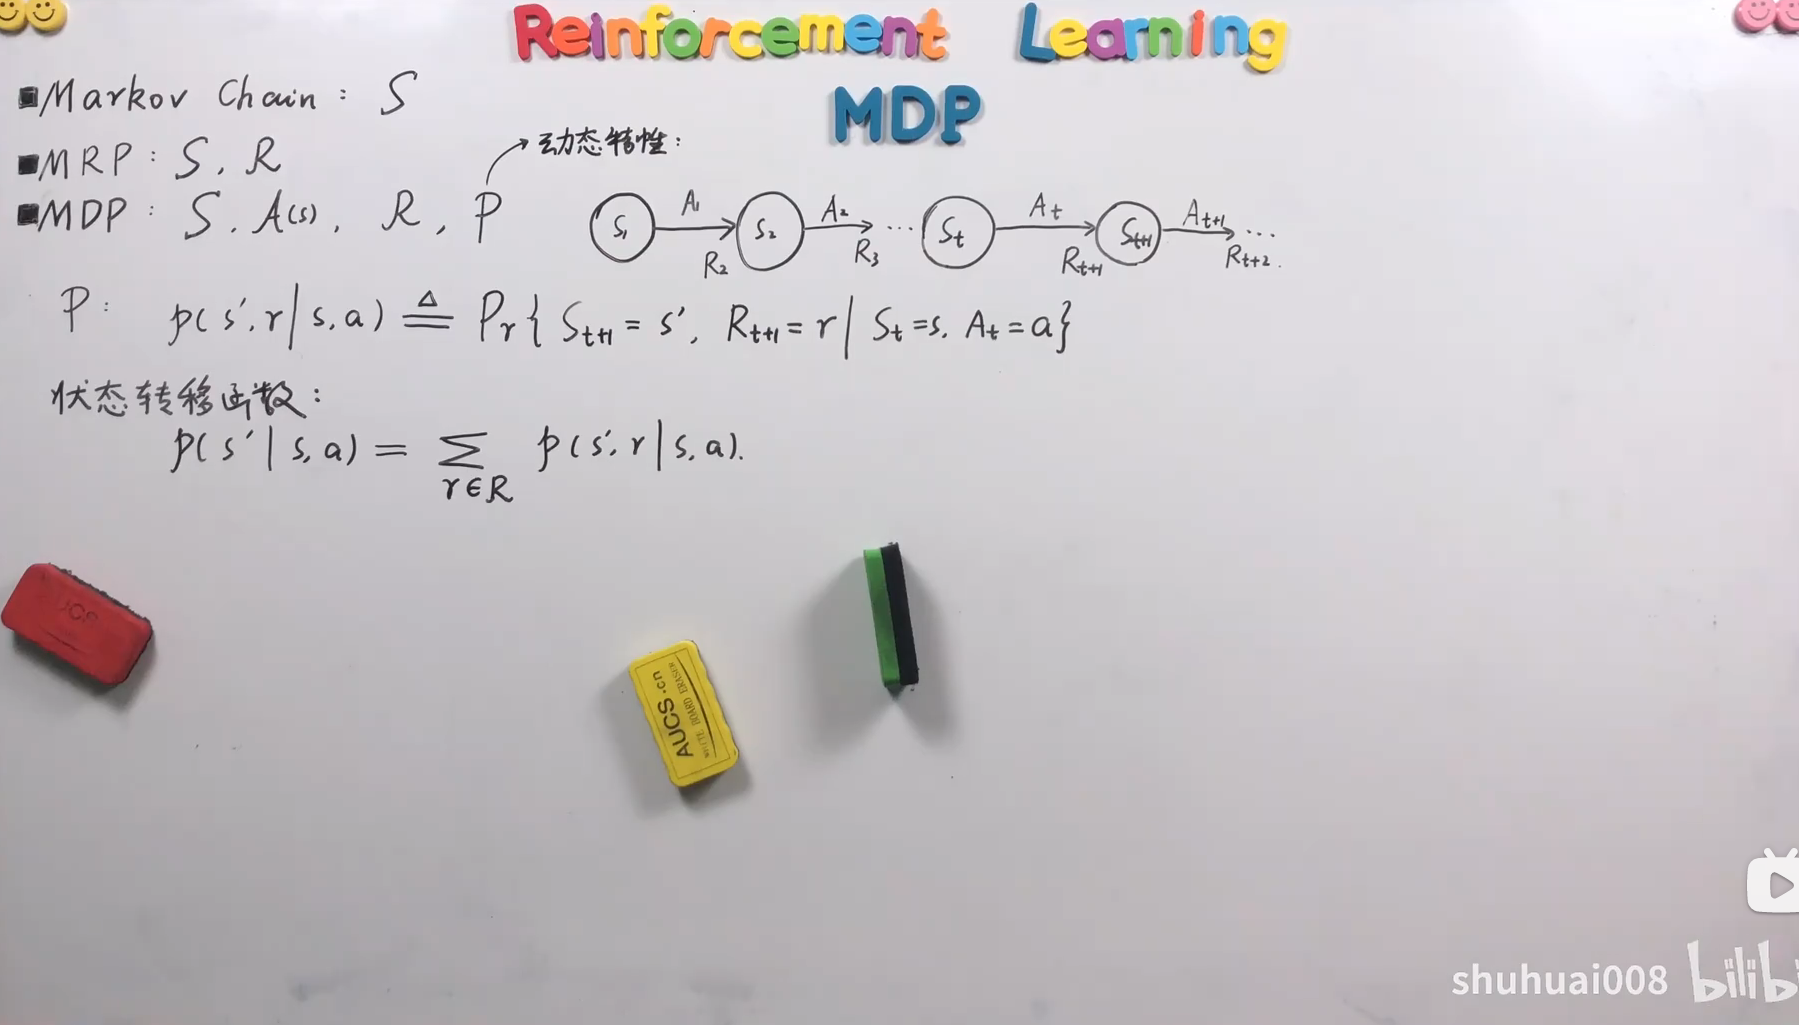 Reinforcement Learning
MDP
■Markov Chain: S
■MRP: S, R
■MDP: S, A(s), R, P
动态特性:
S₁ A₁ R₂ S₂ A₂ R₃ … Sₜ Aₜ Rₜ₊₁ Sₜ₊₁ Aₜ₊₁ Rₜ₊₂ …
P: p(s′, r | s, a) ≜ Pr{ Sₜ₊₁ = s′, Rₜ₊₁ = r | Sₜ = s, Aₜ = a}
状态转移函数:
p(s′ | s, a) = Σ p(s′, r | s, a).
r∈R
AUCS.cn
WHITE BOARD ERASER
shuhuai008 bilibi